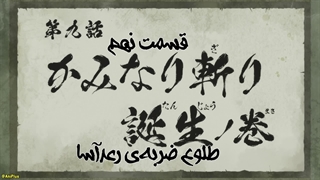 第九話
قسمت نهم
かみなり斬り
ざ
誕生ノ巻
たんじょう まき
طلوع ضربه‌ی رعدآسا